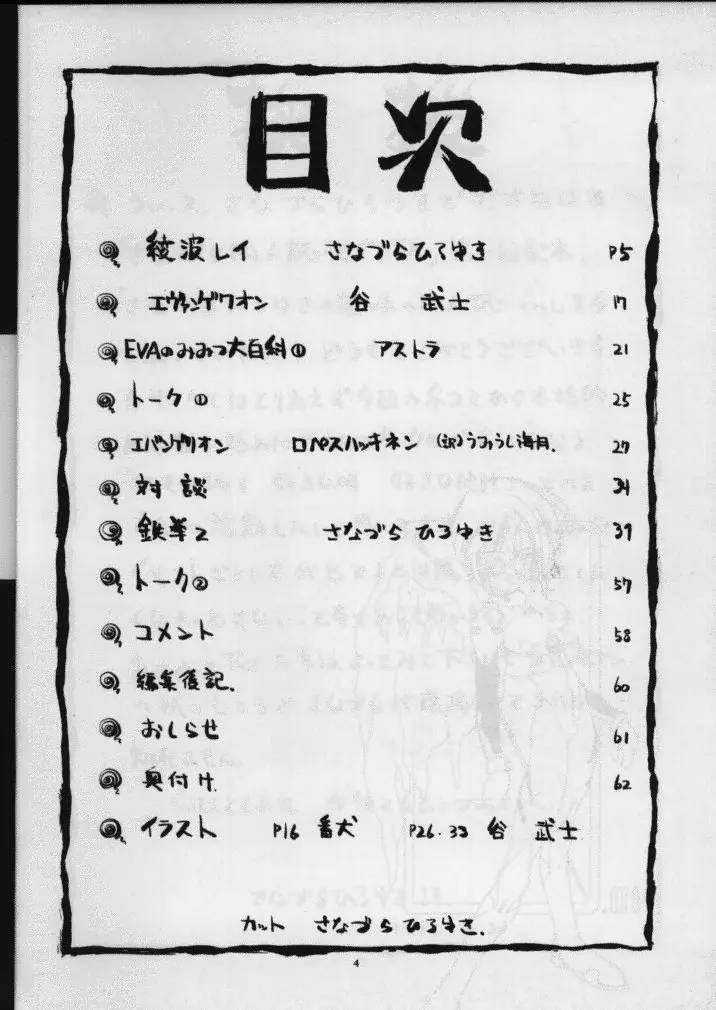 目次
綾波レイ さなづらひろゆき P5
エヴァンゲリオン 谷 武士 17
EVAのみみつ大百科① アストラ 21
トーク① 25
エバンゲリオン ロペスハッキネン (訳)うみうし海月. 27
対談 34
鉄拳2 さなづらひろゆき 37
トーク② 57
コメント 58
編集後記. 60
おしらせ 61
奥付け 62
イラスト P16 番犬 P26.33 谷 武士
カット さなづらひろゆき.
4